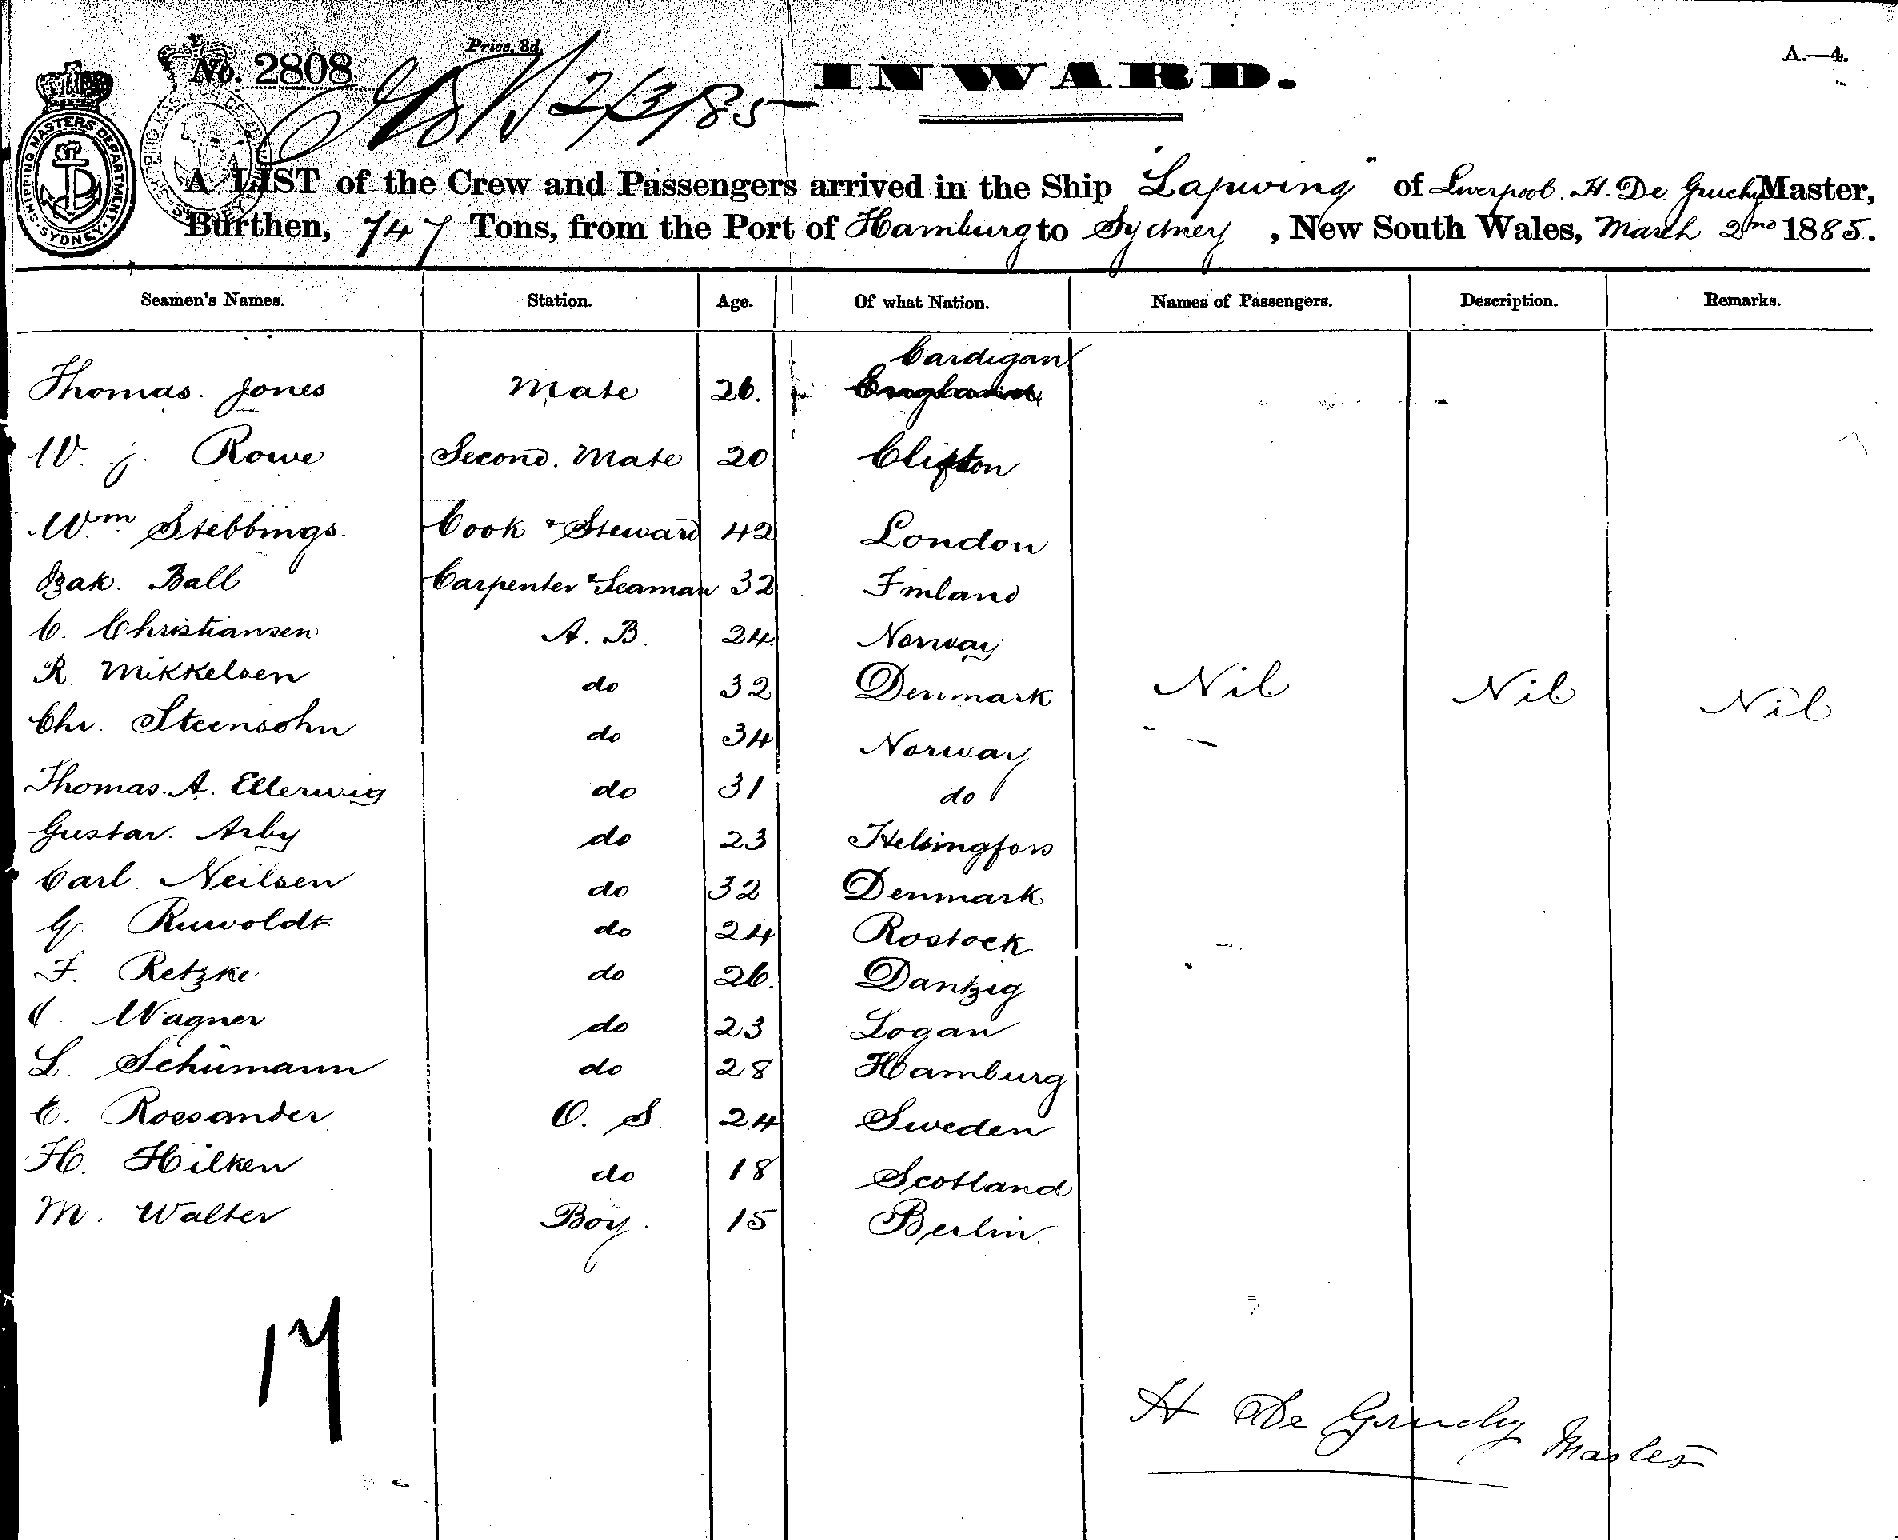 Price, 3d.
No. 2808
2/3/85
INWARD.
A.—4.
SHIPPING MASTERS DEPARTMENT SYDNEY
A LIST of the Crew and Passengers arrived in the Ship "Lapwing" of Liverpool. H. De Gruchy Master,
Burthen, 747 Tons, from the Port of Hamburg to Sydney, New South Wales, March 2nd 1885.
Seamen's Names. Station. Age. Of what Nation. Names of Passengers. Description. Remarks.
Cardigan
Thomas. Jones Mate 26. England
W. J. Rowe Second. Mate 20 Clifton
Wm Stebbings. Cook & Steward 42 London
Ball Carpenter & Seaman 32 Finland
C. Christiansen A. B. 24 Norway
R. Mikkelsen do 32 Denmark Nil Nil Nil
Chr. Steensohn do 34 Norway
Thomas. A. Ellerwig do 31 do
Gustav. Arby do 23 Helsingfors
Carl Neilsen do 32 Denmark
G. Ruwoldt do 24 Rostock
F. Retzke do 26. Dantzig
Wagner do 23 Logan
L. Schümann do 28 Hamburg
C. Roesander O. S 24 Sweden
H. Hilken do 18 Scotland
M. Walter Boy. 15 Berlin.
17
H De Gruchy Master